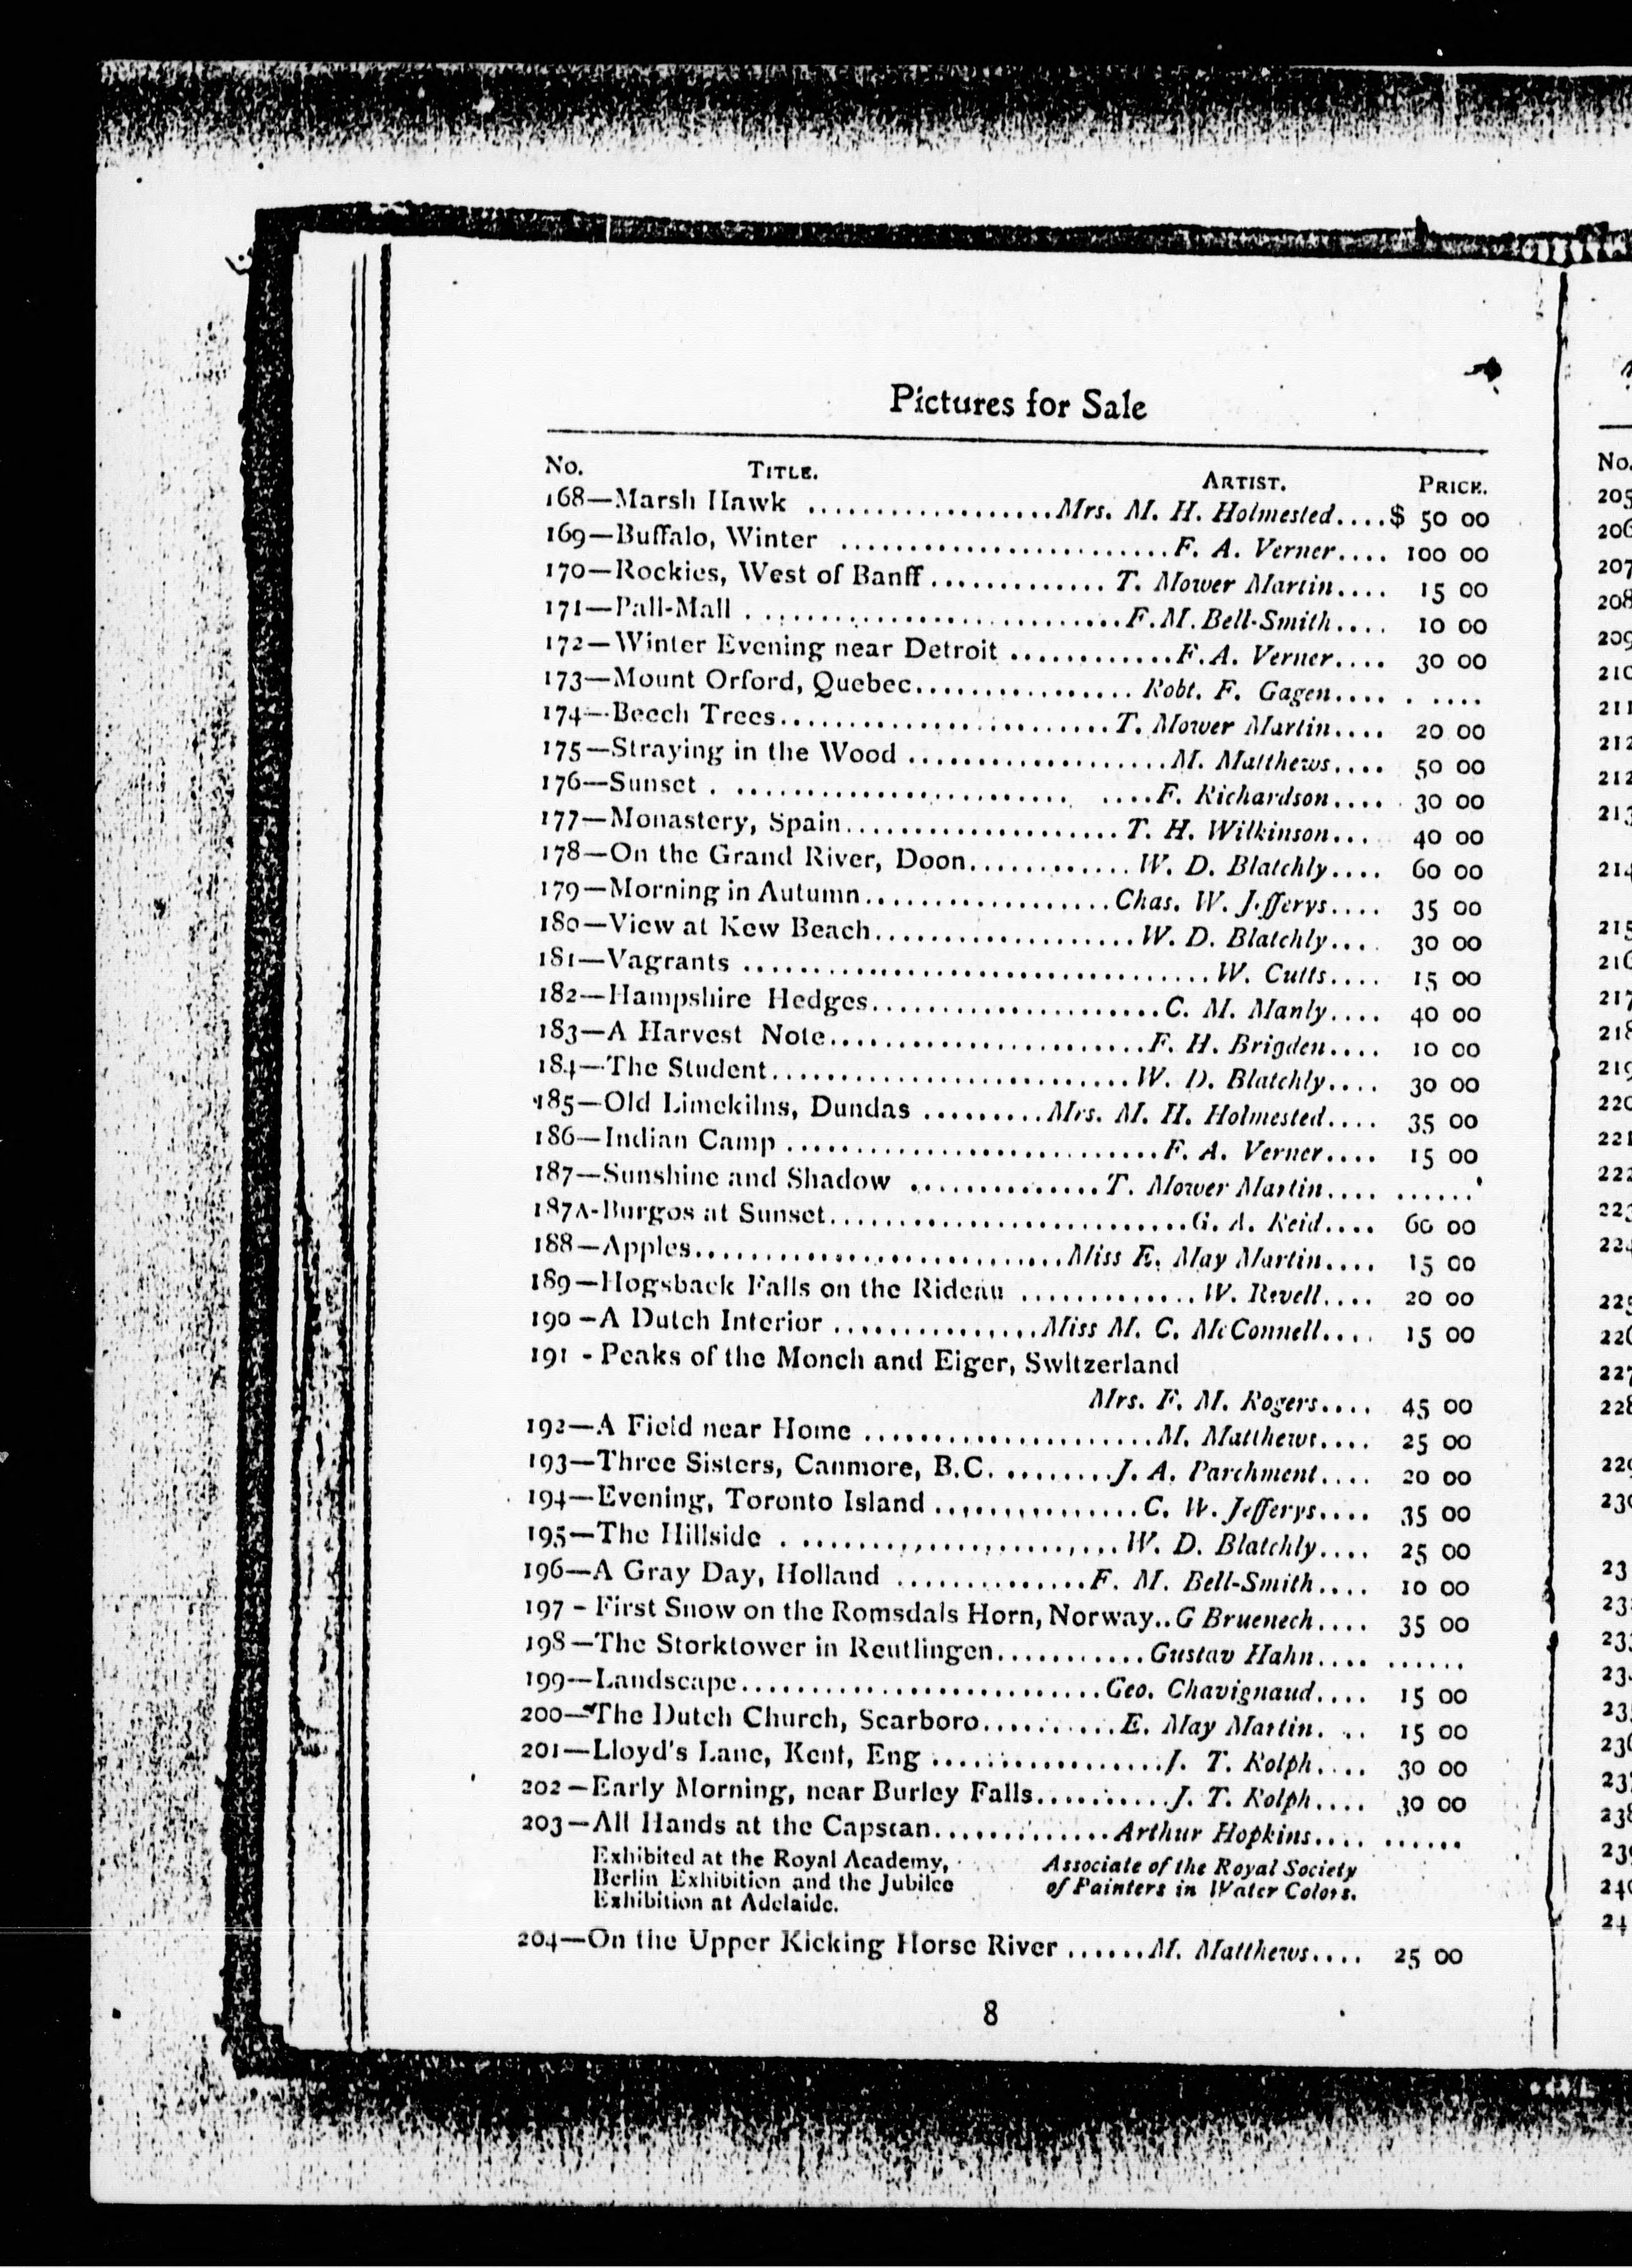 Pictures for Sale
No. TITLE. ARTIST. PRICE.
168—Marsh Hawk ..................Mrs. M. H. Holmested....$ 50 00
169—Buffalo, Winter ........................F. A. Verner.... 100 00
170—Rockies, West of Banff............. T. Mower Martin.... 15 00
171—Pall-Mall ............................F.M. Bell-Smith.... 10 00
172—Winter Evening near Detroit ............F. A. Verner.... 30 00
173—Mount Orford, Quebec................ Robt. F. Gagen.... . ....
174—Beech Trees........................T. Mower Martin.... 20 00
175—Straying in the Wood ...................M. Matthews.... 50 00
176—Sunset . ........................ ....F. Richardson.... 30 00
177—Monastery, Spain.................... T. H. Wilkinson... 40 00
178—On the Grand River, Doon............ W. D. Blatchly.... 60 00
179—Morning in Autumn..................Chas. W. Jefferys.... 35 00
180—View at Kew Beach...................W. D. Blatchly.... 30 00
181—Vagrants ..................................W. Cutts.... 15 00
182—Hampshire Hedges.....................C. M. Manly.... 40 00
183—A Harvest Note.......................F. H. Brigden.... 10 00
184—The Student..........................W. D. Blatchly.... 30 00
185—Old Limekilns, Dundas .........Mrs. M. H. Holmested.... 35 00
186—Indian Camp ...........................F. A. Verner.... 15 00
187—Sunshine and Shadow ..............T. Mower Martin.... ......
187A-Burgos at Sunset..........................G. A. Reid.... 60 00
188—Apples...........................Miss E. May Martin.... 15 00
189—Hogsback Falls on the Rideau .............W. Revell.... 20 00
190—A Dutch Interior ...............Miss M. C. McConnell.... 15 00
191 - Peaks of the Monch and Eiger, Switzerland
Mrs. F. M. Rogers.... 45 00
192—A Field near Home .....................M. Matthews.... 25 00
193—Three Sisters, Canmore, B.C. ........J. A. Parchment.... 20 00
194—Evening, Toronto Island ...............C. W. Jefferys.... 35 00
195—The Hillside . .......................W. D. Blatchly.... 25 00
196—A Gray Day, Holland ..............F. M. Bell-Smith.... 10 00
197 - First Snow on the Romsdals Horn, Norway..G Bruenech.... 35 00
198—The Storktower in Reutlingen...........Gustav Hahn.... ......
199—Landscape..........................Geo. Chavignaud.... 15 00
200—The Dutch Church, Scarboro..........E. May Martin. .. 15 00
201—Lloyd's Lane, Kent, Eng .................J. T. Rolph.... 30 00
202—Early Morning, near Burley Falls..........J. T. Rolph.... 30 00
203—All Hands at the Capstan.............Arthur Hopkins.... ......
Exhibited at the Royal Academy, Associate of the Royal Society
Berlin Exhibition and the Jubilee of Painters in Water Colors.
Exhibition at Adelaide.
204—On the Upper Kicking Horse River ......M. Matthews.... 25 00
8
No.